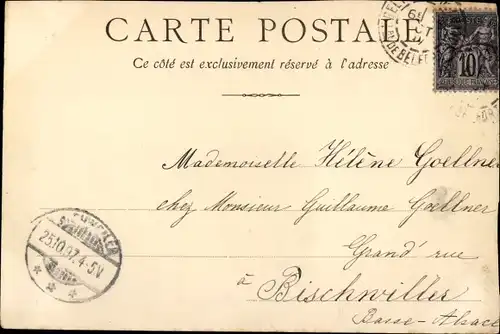 CARTE POSTALE
Ce côté est exclusivement réservé à l'adresse
DE BELFO
10
Mademoiselle Hélène Goellner
chez Monsieur Guillaume Goellner
Grand' rue
à Bischwiller
Basse-Alsace
25.10.97.4-5N